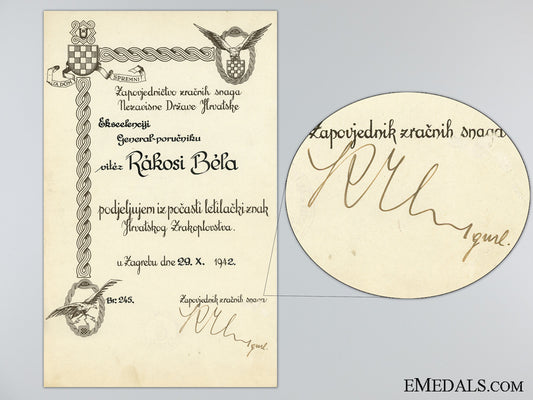 ZA DOM
SPREMNI
U
Zapovjedničtvo zračnih snaga
Nezavisne Države Hrvatske
Ekscelenciji
General-poručniku
vitéz Rákosi Béla
podjeljujem iz počasti letilački znak
Hrvatskog Zrakoplovstva.
u Zagrebu dne 29. X. 1942.
Br: 245.
Zapovjednik zračnih snaga
Zapovjednik zračnih snaga
EMEDALS.COM